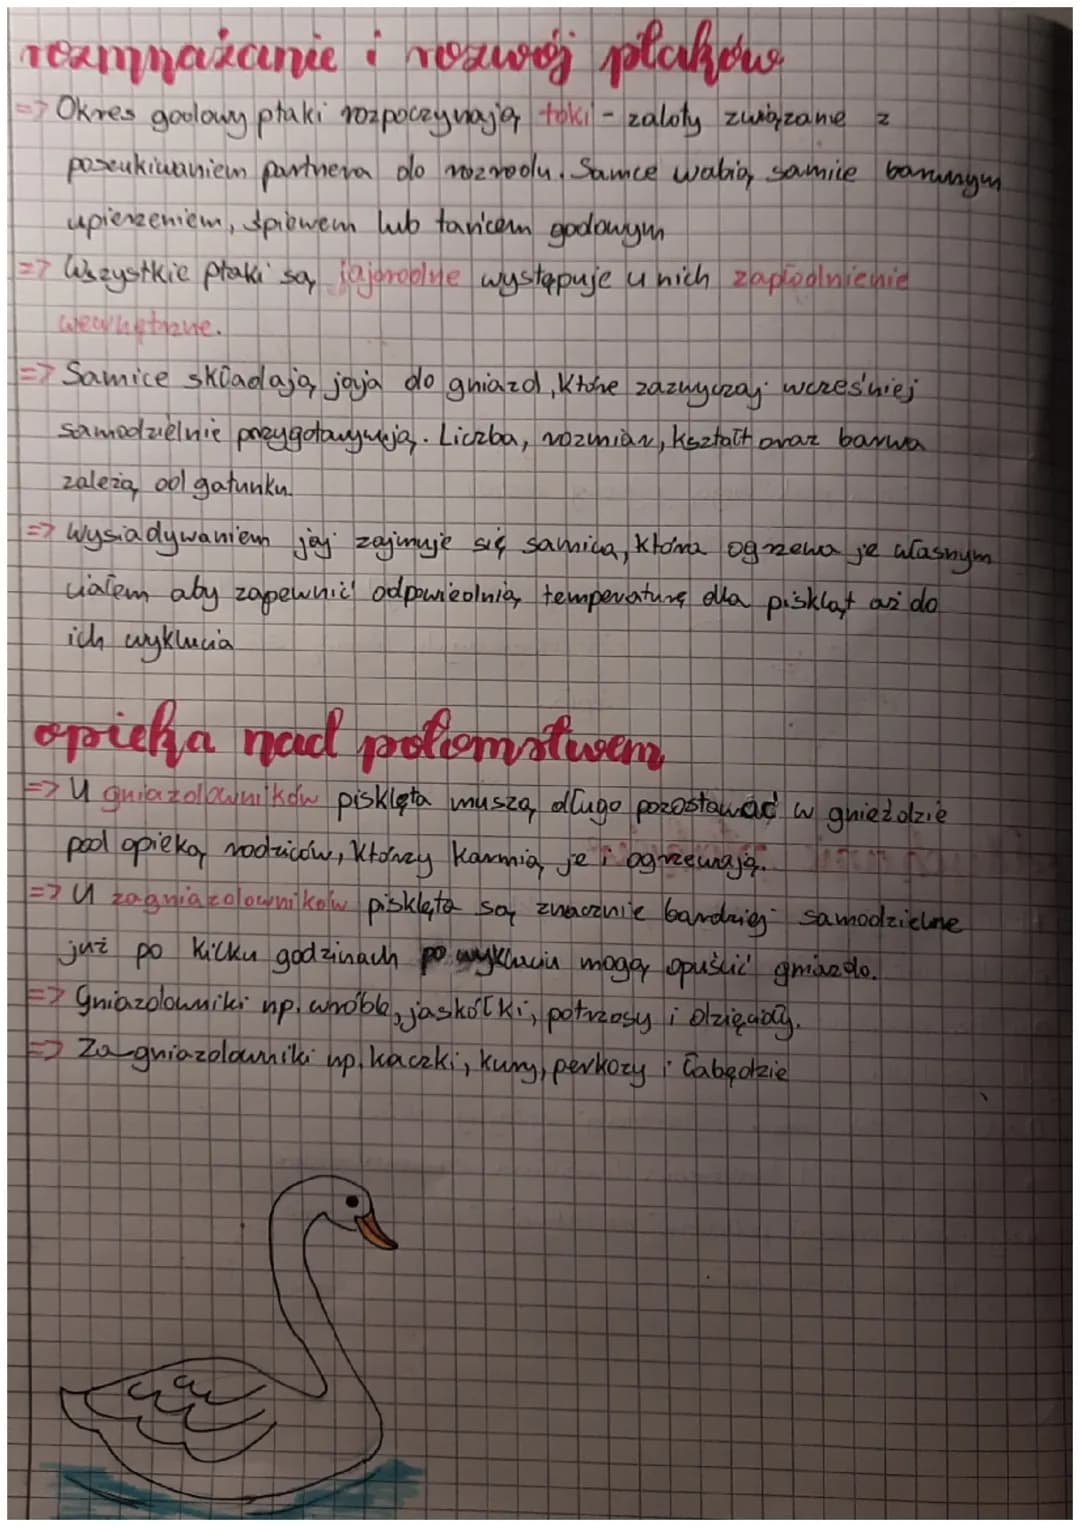 rozmnażanie i rozwój ptaków
=> Okres godowy ptaki rozpoczynają toki - zaloty związane z
poszukiwaniem partnera do rozrodu. Samce wabią samice barwnym
upierzeniem, śpiewem lub tańcem godowym
=> Wszystkie ptaki są jajorodne występuje u nich zapłodnienie
wewnętrzne.
=> Samice składają jaja do gniazd, które zazwyczaj wcześniej
samodzielnie przygotowywują. Liczba, rozmiar, kształt oraz barwa
zależą od gatunku.
=> Wysiadywaniem jaj zajmuje się samica, która ogrzewa je własnym
ciałem aby zapewnić odpowiednią temperaturę dla piskląt aż do
ich wyklucia
opieka nad potomstwem
=> U gniazdowników pisklęta muszą długo pozostawać w gnieździe
pod opieką rodziców, którzy karmią je i ogrzewają.
=> U zagniazdowników pisklęta są znacznie bardziej samodzielne
już po kilku godzinach po wykluciu mogą opuścić gniazdo.
=> Gniazdowniki np. wróble, jaskółki, potrzosy i dzięcioły.
=> Zagniazdowniki np. kaczki, kury, perkozy i łabędzie